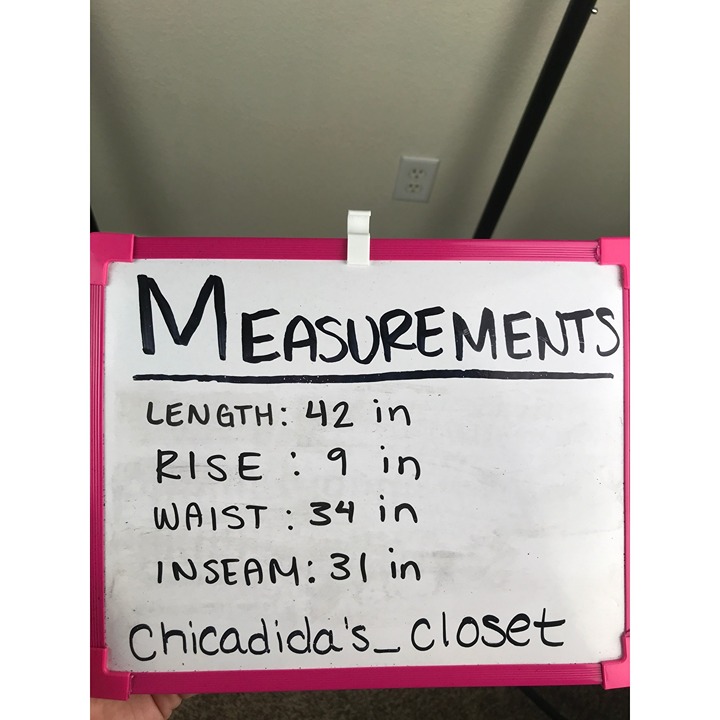 MEASUREMENTS
LENGTH: 42 in
RISE : 9 in
WAIST : 34 in
INSEAM: 31 in
Chicadida's_closet